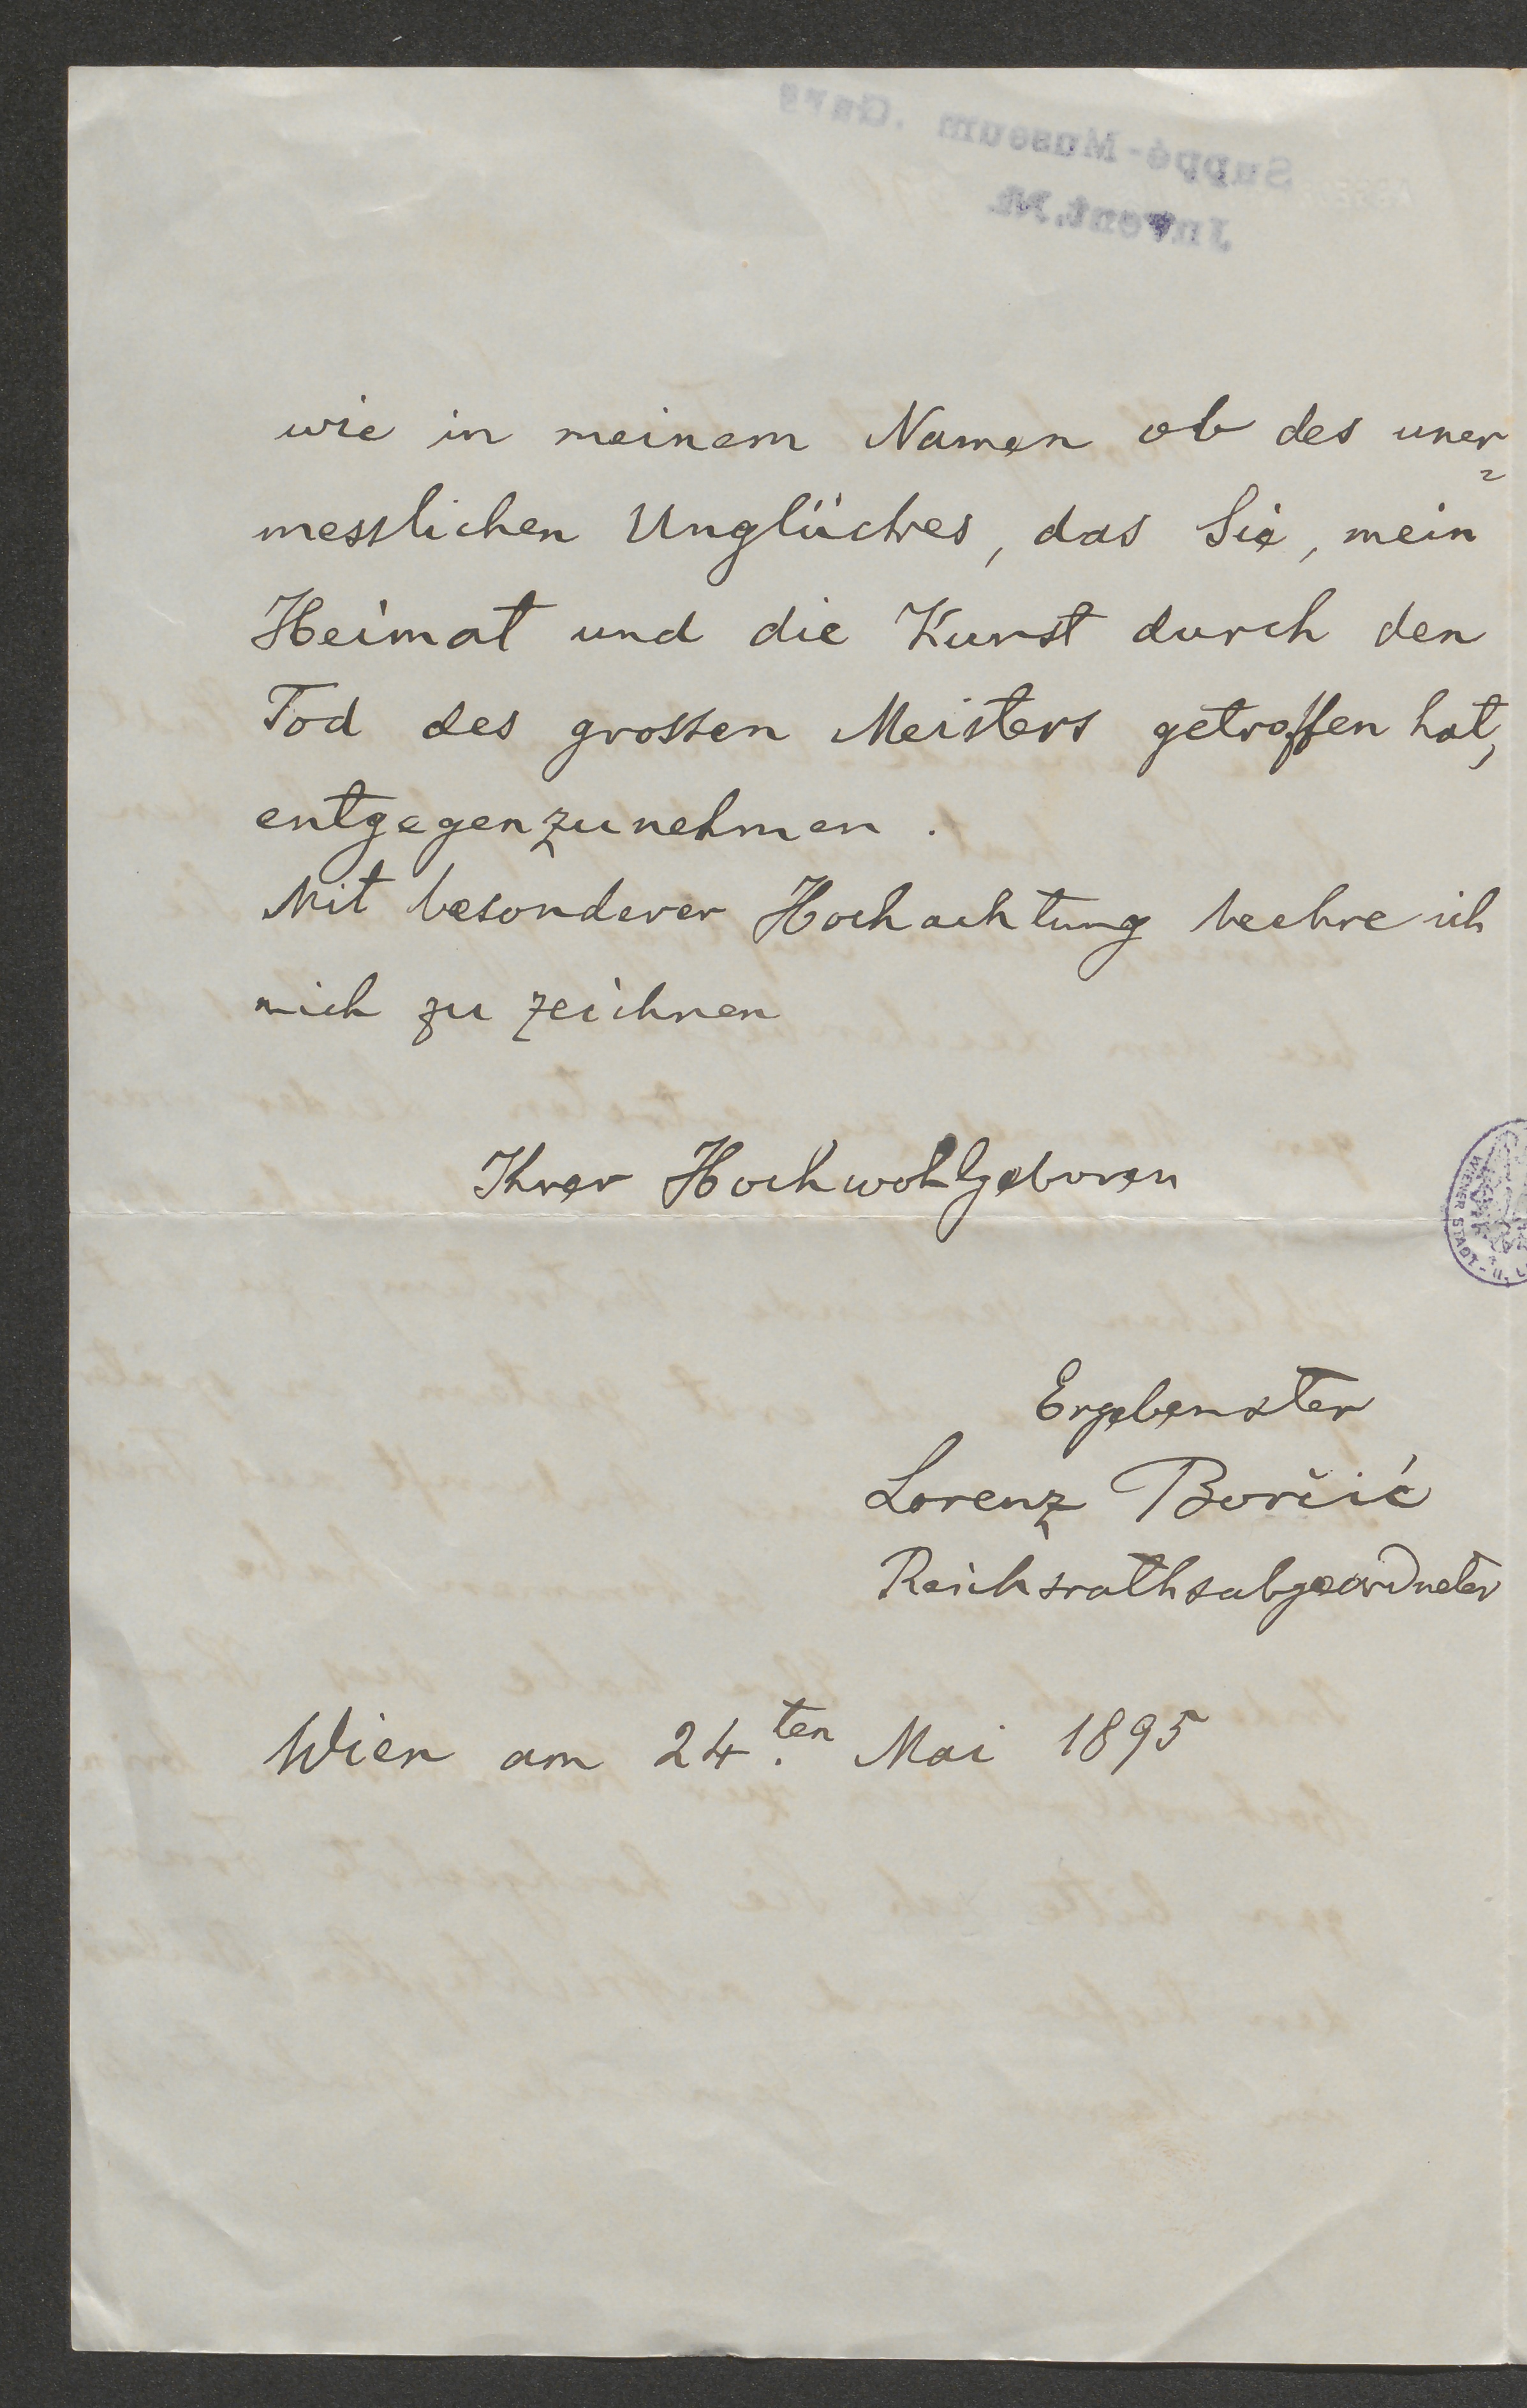 Suppé-Museum .Gars
Invent.Nr.
wie in meinem Namen ob des uner=
messlichen Unglückes, das Sie, mein
Heimat und die Kunst durch den
Tod des grossen Meisters getroffen hat,
entgegenzunehmen.
Mit besonderer Hochachtung beehre ich
mich zu zeichnen
Ihrer Hochwohlgeboren
WIENER STADT-
Ergebenster
Lorenz Borčić
Reichsrathsabgeordneter
Wien am 24.ten Mai 1895